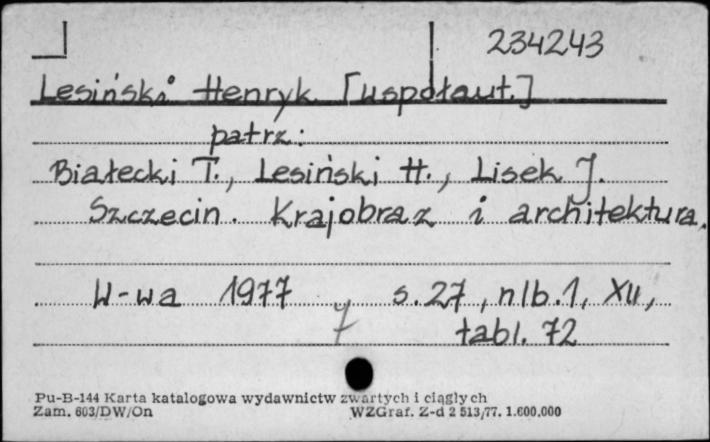 234243
Lesiński Henryk [współaut.]
patrz:
Białecki T., Lesiński H., Lisek J.
Szczecin. Krajobraz i architektura.
W-wa 1977 s. 27, nlb. 1, XII,
7
tabl. 72
Pu-B-144 Karta katalogowa wydawnictw zwartych i ciągłych
Zam. 603/DW/On WZGraf. Z-d 2 513/77. 1.600.000